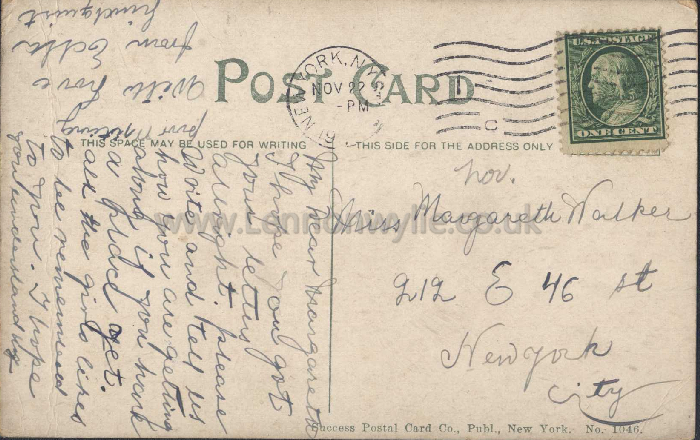 POST CARD
NEW YORK, N.Y.
NOV 22
-PM
C
U.S. POSTAGE
ONE CENT
THIS SPACE MAY BE USED FOR WRITING
THIS SIDE FOR THE ADDRESS ONLY
My Dear Margareth
I hope you got
your letters
allright. please
Write and tell us
how you are getting
along if you have
a place yet.
all the girls likes
to be remembered
to you. I hope
you understand my
writing
With love
from Edla
Lindquist
Nov.
Miss Margareth Walker
212 E 46 st
New york
City
www.Lennonwylie.co.uk
Success Postal Card Co., Publ., New York. No. 1046.